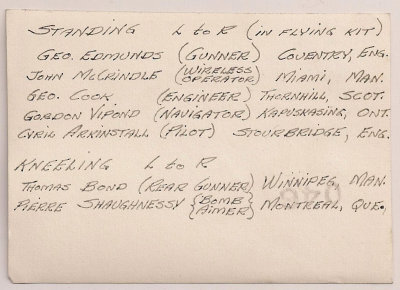 STANDING L to R (IN FLYING KIT)
GEO. EDMUNDS (GUNNER) COVENTRY, ENG.
JOHN McCRINDLE (WIRELESS OPERATOR) MIAMI, MAN.
GEO. COOK (ENGINEER) THORNHILL, SCOT.
GORDON VIPOND (NAVIGATOR) KAPUSKASING, ONT.
CYRIL ARKINSTALL (PILOT) STOURBRIDGE, ENG.
KNEELING L to R
THOMAS BOND (REAR GUNNER) WINNIPEG, MAN.
PIERRE SHAUGHNESSY {BOMB AIMER} MONTREAL, QUE.,